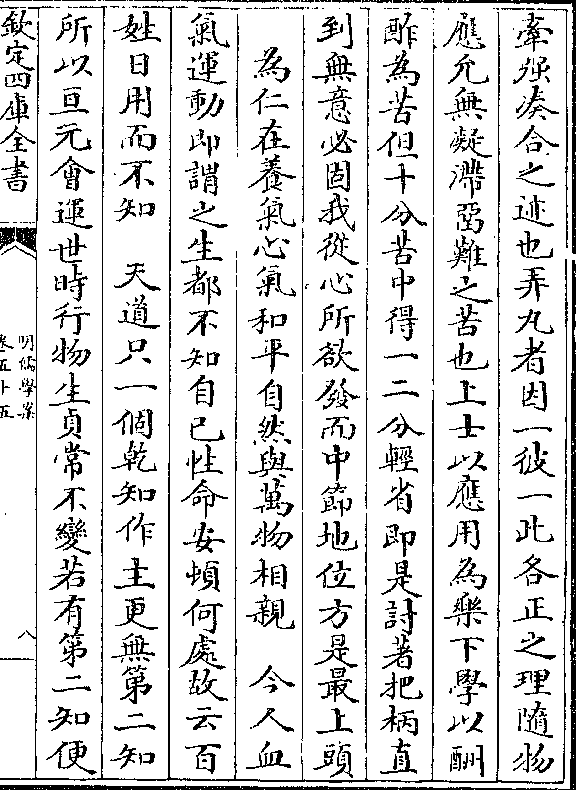 牽强湊合之迹也弄丸者因一彼一此各正之理隨物
應允無凝滯弼難之苦也上士以應用為樂下學以酬
酢為苦但十分苦中得一二分輕省即是討著把柄直
到無意必固我從心所欲發而中節地位方是最上頭
為仁在養氣心氣和平自然與萬物相親　今人血
氣運動即謂之生都不知自已性命安頓何處故云百
姓日用而不知　天道只一個乾知作主更無第二知
所以亘元會運世時行物生貞常不變若有第二知便
欽定四庫全書
明儒學案
卷五十五
八